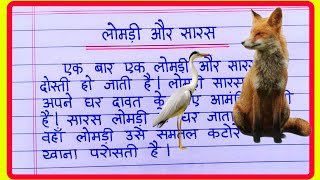 लोमड़ी और सारस
एक बार एक लोमड़ी और सारस
दोस्ती हो जाती है। लोमड़ी सारस
अपने घर दावत के
है। सारस लोमड़ी घर जाता
वहाँ लोमड़ी उसे समतल कटोरे
खाना परोसती है।